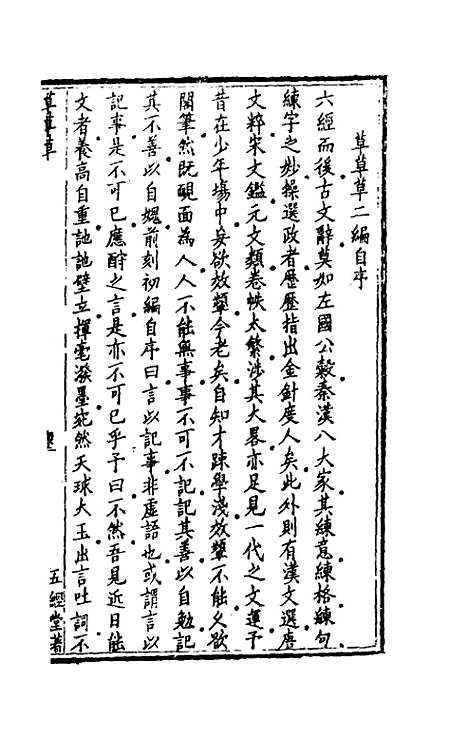 草草草二編自序
六經而後古文辭莫如左國公穀秦漢八大家其練意練格練句
練字之妙操選政者歷歷指出金針度人矣此外則有漢文選唐
文粹宋文鑑元文類卷帙太繁涉其大畧亦足見一代之文運予
昔在少年場中妄欲效顰今老矣自知才踈學淺效顰不能又欲
閣筆然既靦面為人人不能無事事不可不記記其善以自勉記
其不善以自媿前刻初編自序曰言以記事非虛語也或謂言以
記事是不可已應酧之言是亦不可已乎予曰不然吾見近日能
文者養高自重訑訑壁立揮毫潑墨宛然天球大玉出言吐詞不
草草草
五經堂著